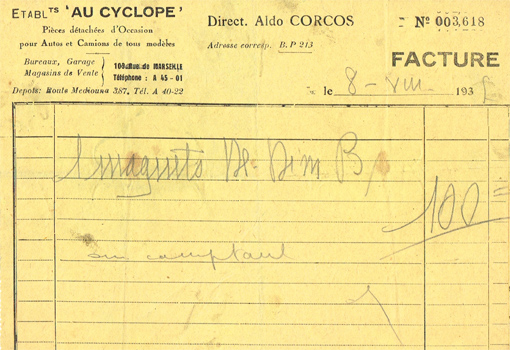 ETABL.TS 'AU CYCLOPE'
Pièces détachées d'Occasion
pour Autos et Camions de tous modèles
Bureaux, Garage
Magasins de Vente
100, Rue de MARSEILLE
Téléphone : A 45-01
Depots: Route Mediouna 387, Tél. A 40-22
Direct. Aldo CORCOS
Adresse corresp. B.P 213
Nº 003,618
FACTURE
le 8 - VIII 193
1 magneto
100
au comptant